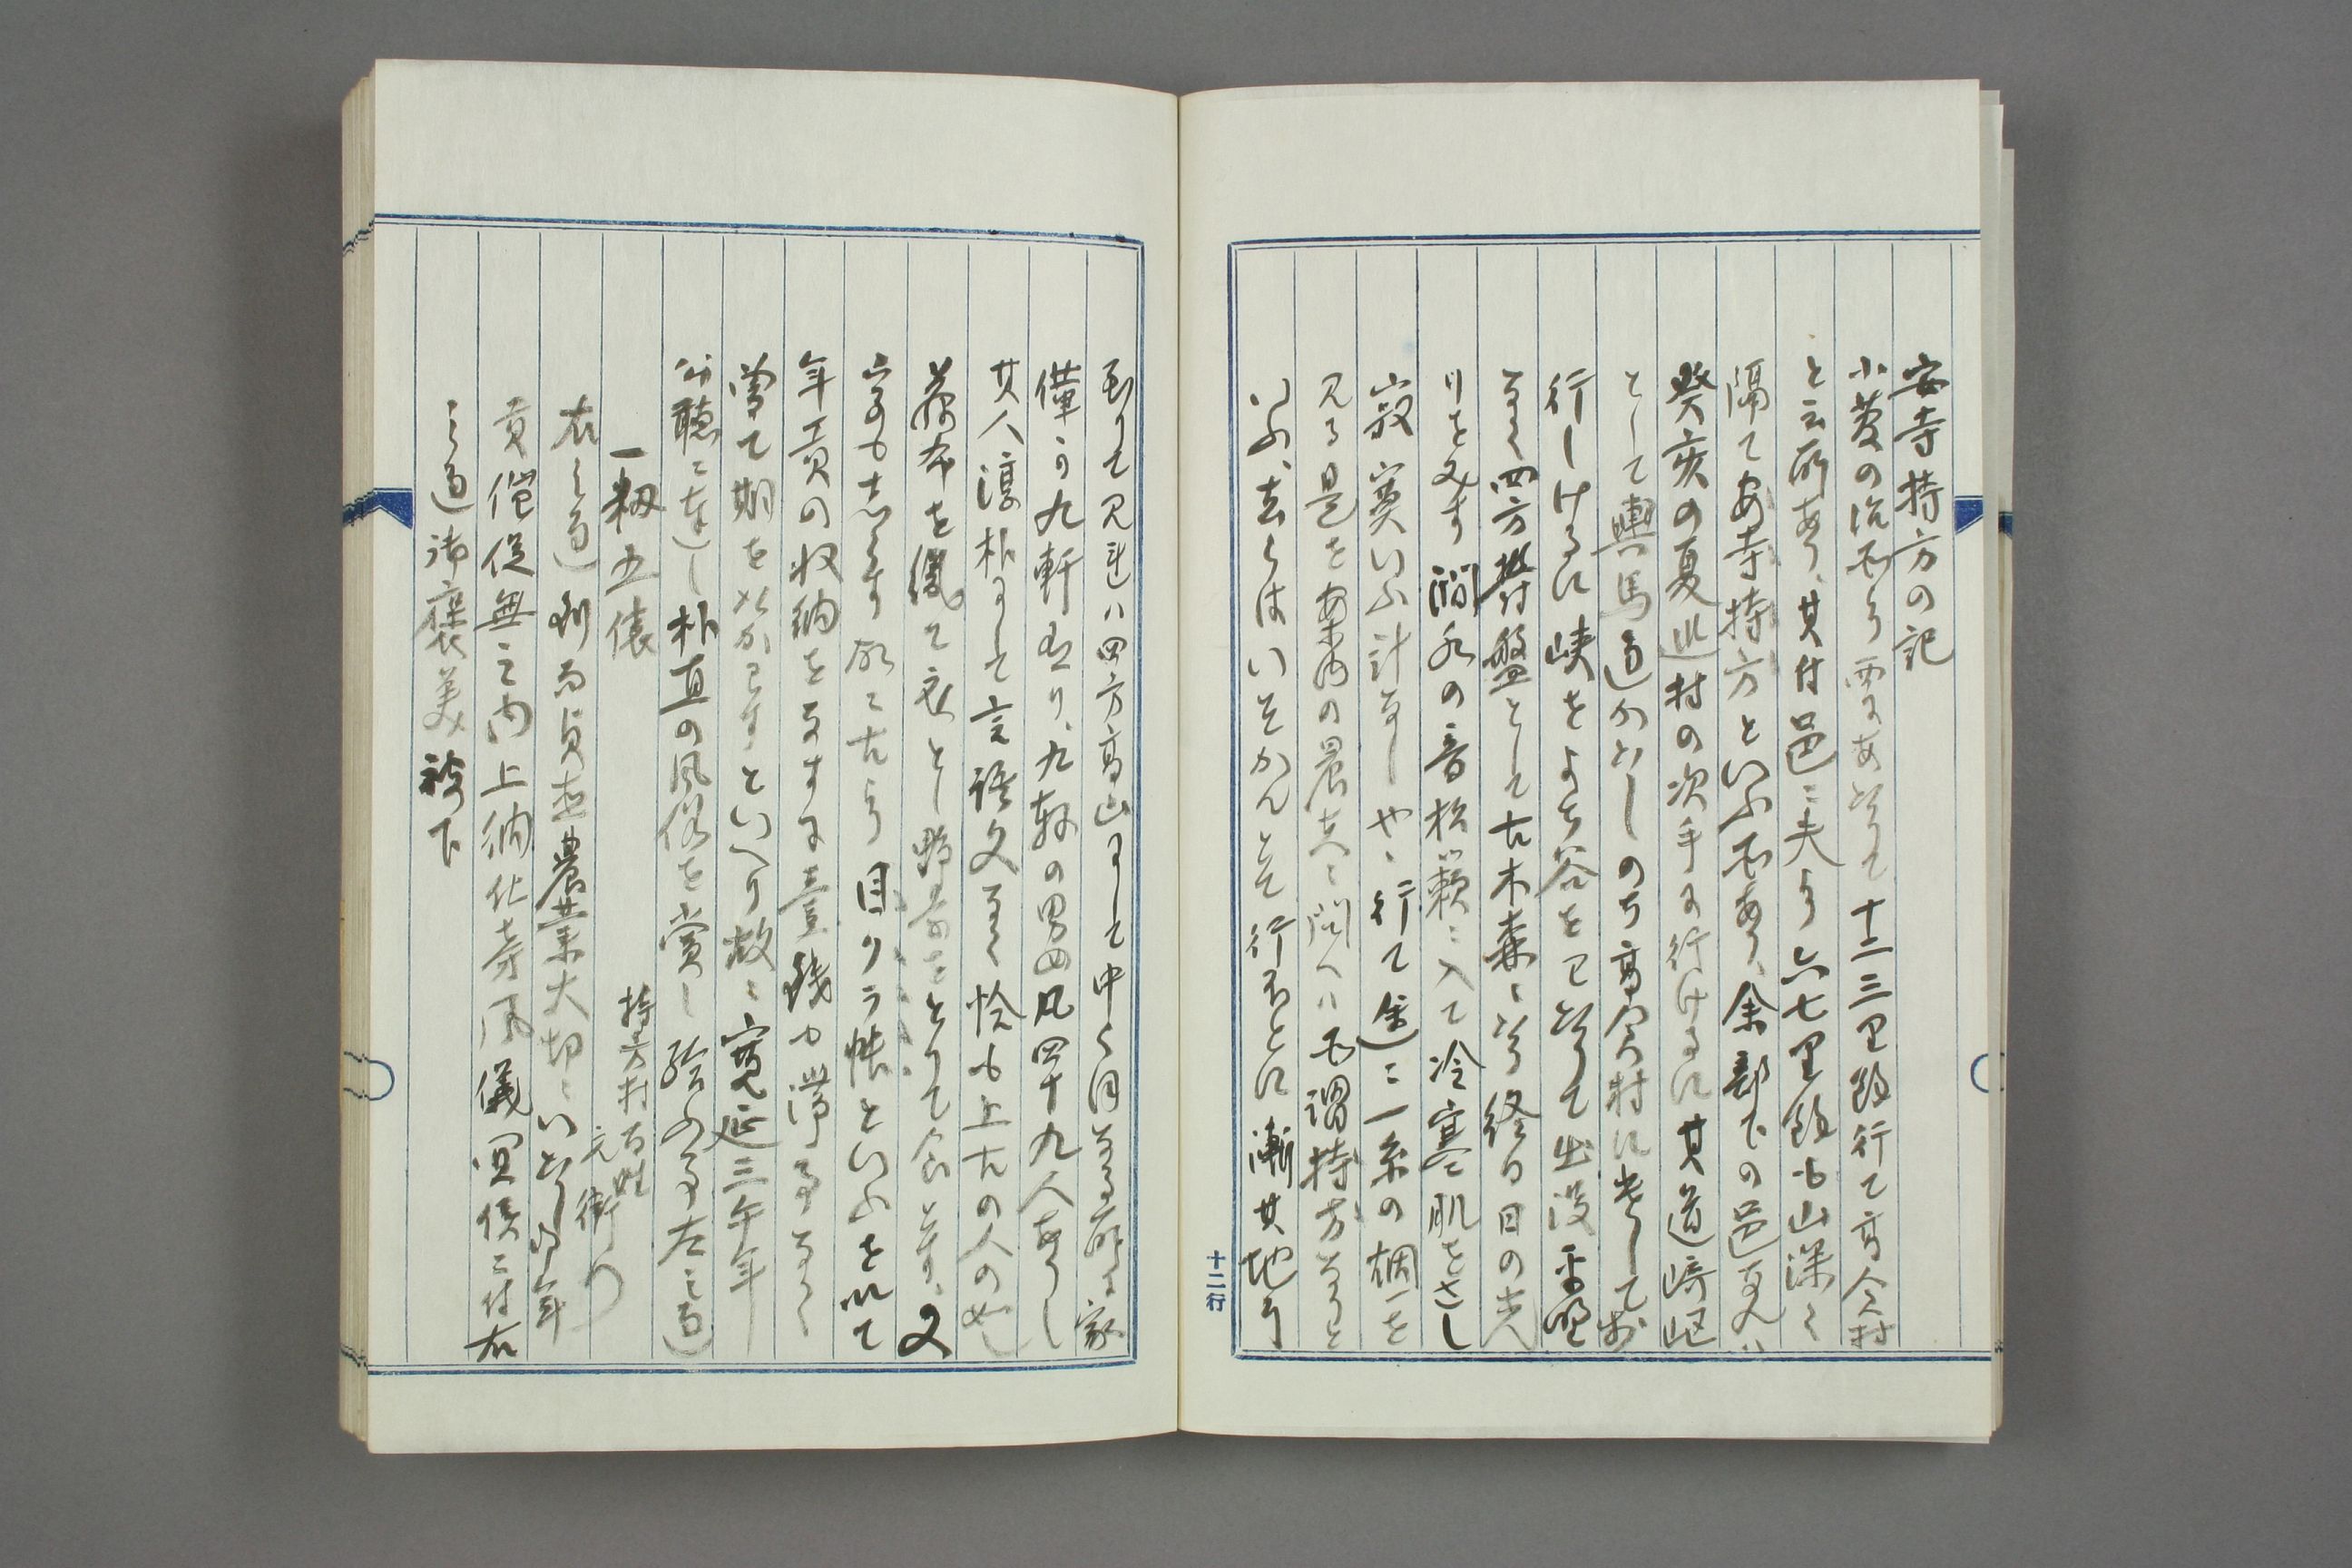 安寺持方の記
小菱の治所より西にあたりて十二三里的行て高倉村
と云所あり、其村邑を夫より六七里的も山深く
隔て安寺持方といふ所あり、余部下の邑
癸亥の夏巡村の次手に行けるに其道崎嶇
として輿馬通かたしのち高倉村に
行しけるに峡をよち谷をわたりて出没
なく四方欝盤として古木森々終日日の光
りを見す澗水の音松籟に入て冷寒肌をさし
寂寞いふ計なしやゝ行て途に一条の棡を
見る是を案内の農夫に問へハ所謂持方なると
いふ、去らはいそかんとて行ほとに漸其地に
到りて見れハ四方高山にして中く凹なる所に家
僅に九軒あり、九軒の男女凡四十九人ありし
其人淳朴にして言語文なく恰も上古の人の如し
藤布を織て衣とし野菜をとりて食とす、又
字をも志らす故に古より目クラ帳といふを以て
年貢の収納をなすに壹錢も滞る事なく
嘗て期をたかヘすといへり故に寛延三午年
公聴に達し朴直の風俗を賞し給ふ事左之通
一籾五俵
持方村百姓
元衛門
右之通別而貞直農業大切にいたし年
貢催促無之内上納仕寺風儀宜候ニ付右
之通御褒美被下
十二行